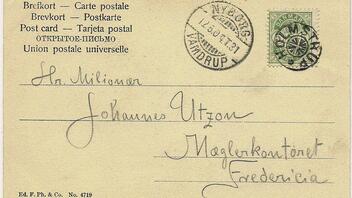 Brefkort — Carte postale
Brevkort — Postkarte
Post card — Tarjeta postal
ОТКРЫТОЕ-ПИСЬМО
Union postale universelle
NYBORG-
VAMDRUP
HOLMSTRUP
Hr. Milionær
Johannes Utzon
Mæglerkontoret
Fredericia
Ed. F. Ph. & Co. No. 4719